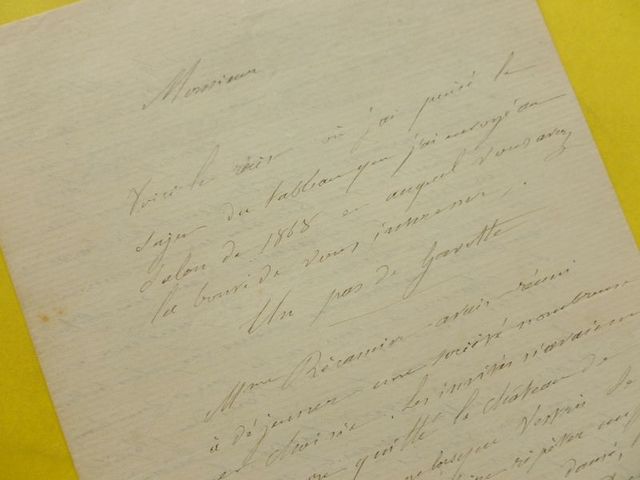 Monsieur
Voici le récit où j'ai puisé le
sujet du tableau que j'ai envoyé au
Salon de 1868 et auquel vous avez
la bonté de vous intéresser.
Un pas de Gavotte
Mme Récamier avait réuni
à déjeuner une société nombreuse
et choisie. Les invités n'avaient
quitté le château de
lorsque Vestris
répéter